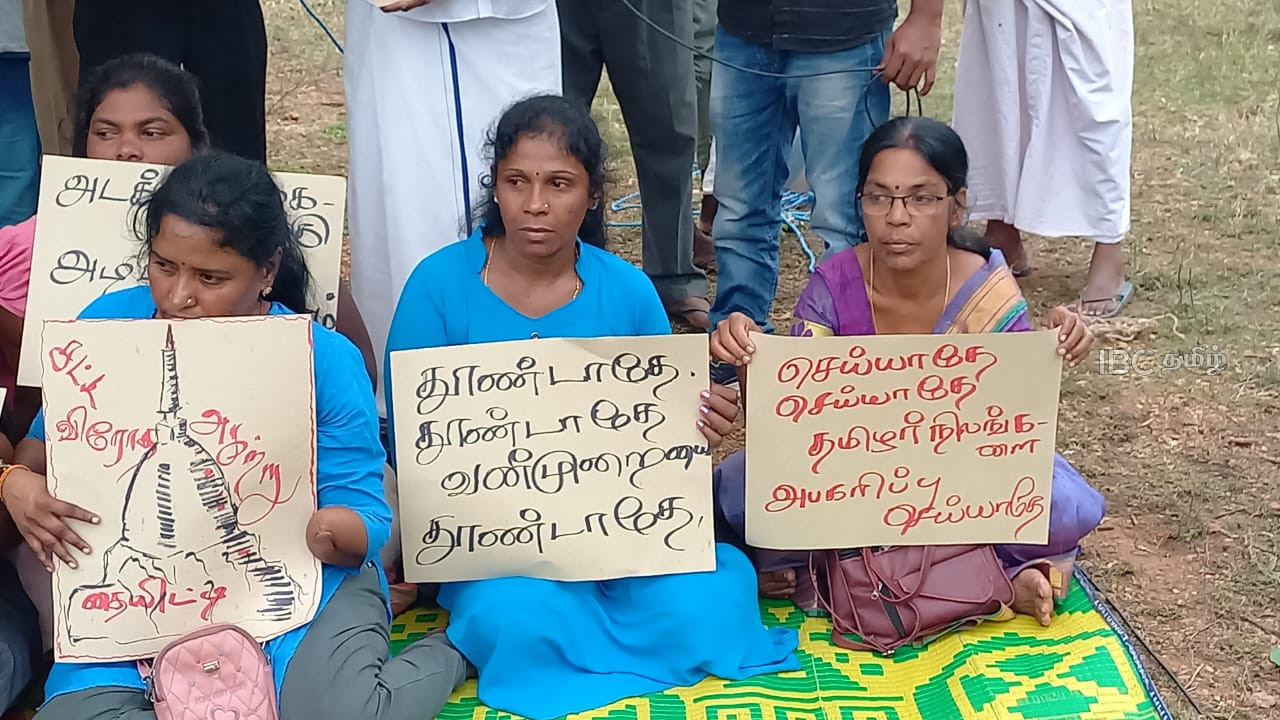 அடக்
அட
சட்ட
விரோத
அகற்று
தையிட்டி
தூண்டாதே.
தூண்டாதே
வண்முறையை
தூண்டாதே.
செய்யாதே
செய்யாதே
தமிழர் நிலங்க-
ளை
அபகரிப்பு
செய்யாதே
IBC தமிழ்